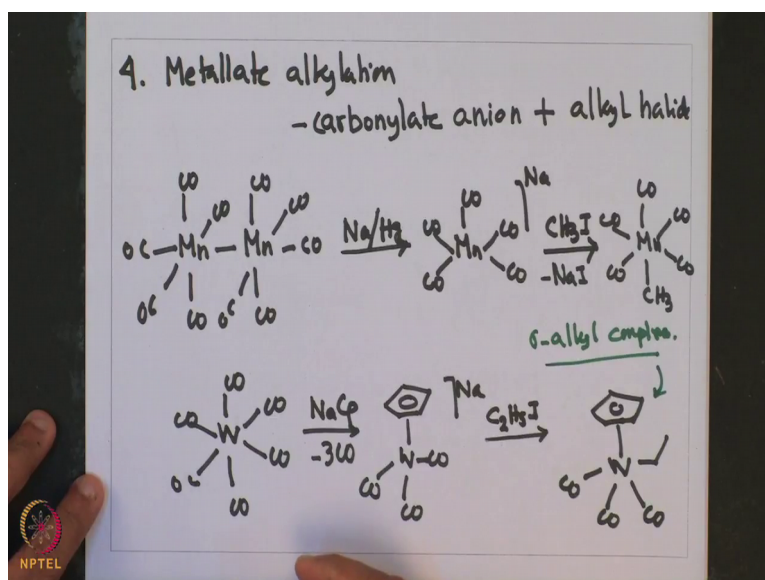 4. Metallate alkylation
- carbonylate anion + alkyl halide
CO CO
CO CO
OC Mn Mn CO
OC CO OC CO
Na/Hg
CO Na
CO Mn CO
CO CO
CH3I
-NaI
CO
CO Mn CO
CO CO
CH3
σ-alkyl complex.
CO
CO W CO
OC CO
CO
NaCp
-3CO
Na
W CO
CO CO
C2H5I
W
CO CO CO
NPTEL